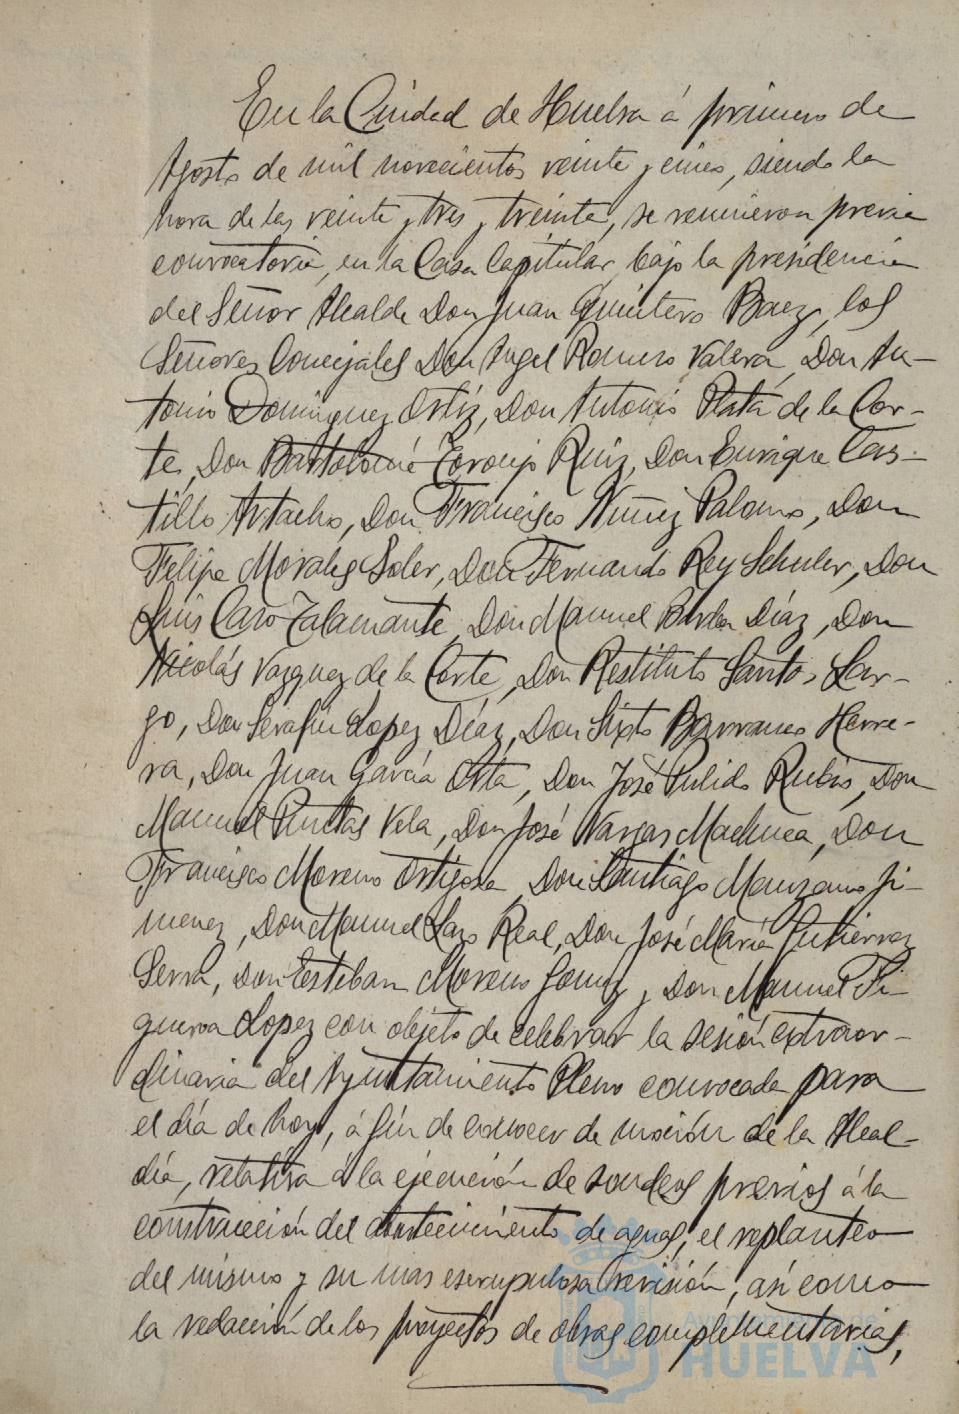 En la Ciudad de Huelva á primero de
Agosto de mil novecientos veinte y cinco, siendo la
hora de las veinte y tres y treinta, se reunieron previa
convocatoria, en la Casa Capitular, bajo la presidencia
del Señor Alcalde Don Juan Quintero Baez, los
Señores Concejales Don Angel Romero Valera, Don An-
tonio Dominguez Ortíz, Don Antonio Plata de la Cor-
te, Don Bartolomé Toronjo Ruiz, Don Enrique Cas-
tillo Artacho, Don Francisco Nuñez Palomo, Don
Felipe Morales Soler, Don Fernando Rey Schuler, Don
Luis Caro Talamante, Don Manuel Barba Díaz, Don
Nicolás Vazquez de la Corte, Don Restituto Santos Lar-
go, Don Serafin Lopez Díaz, Don Sixto Barranco Herre-
ra, Don Juan García Orta, Don José Pulido Rubio, Don
Manuel Vela, Don José Vargas Machuca, Don
Francisco Moreno Ortigosa, Don Santiago Manzano Ji-
menez, Don Manuel Lazo Real, Don José María Gutierrez
Serra, Don Esteban Moreno Gomez y Don Manuel Fi-
gueroa Lopez con objeto de celebrar la sesión extraor-
dinaria del Ayuntamiento Pleno convocada para
el día de hoy, á fin de conocer de moción de la Alcal-
día, relativa á la ejecución de sondeos previos á la
construcción del abastecimiento de aguas, el replanteo
del mismo y su mas escrupulosa revisión, así como
la redacción de los proyectos de obras complementarias,
Ayuntamiento de
HUELVA